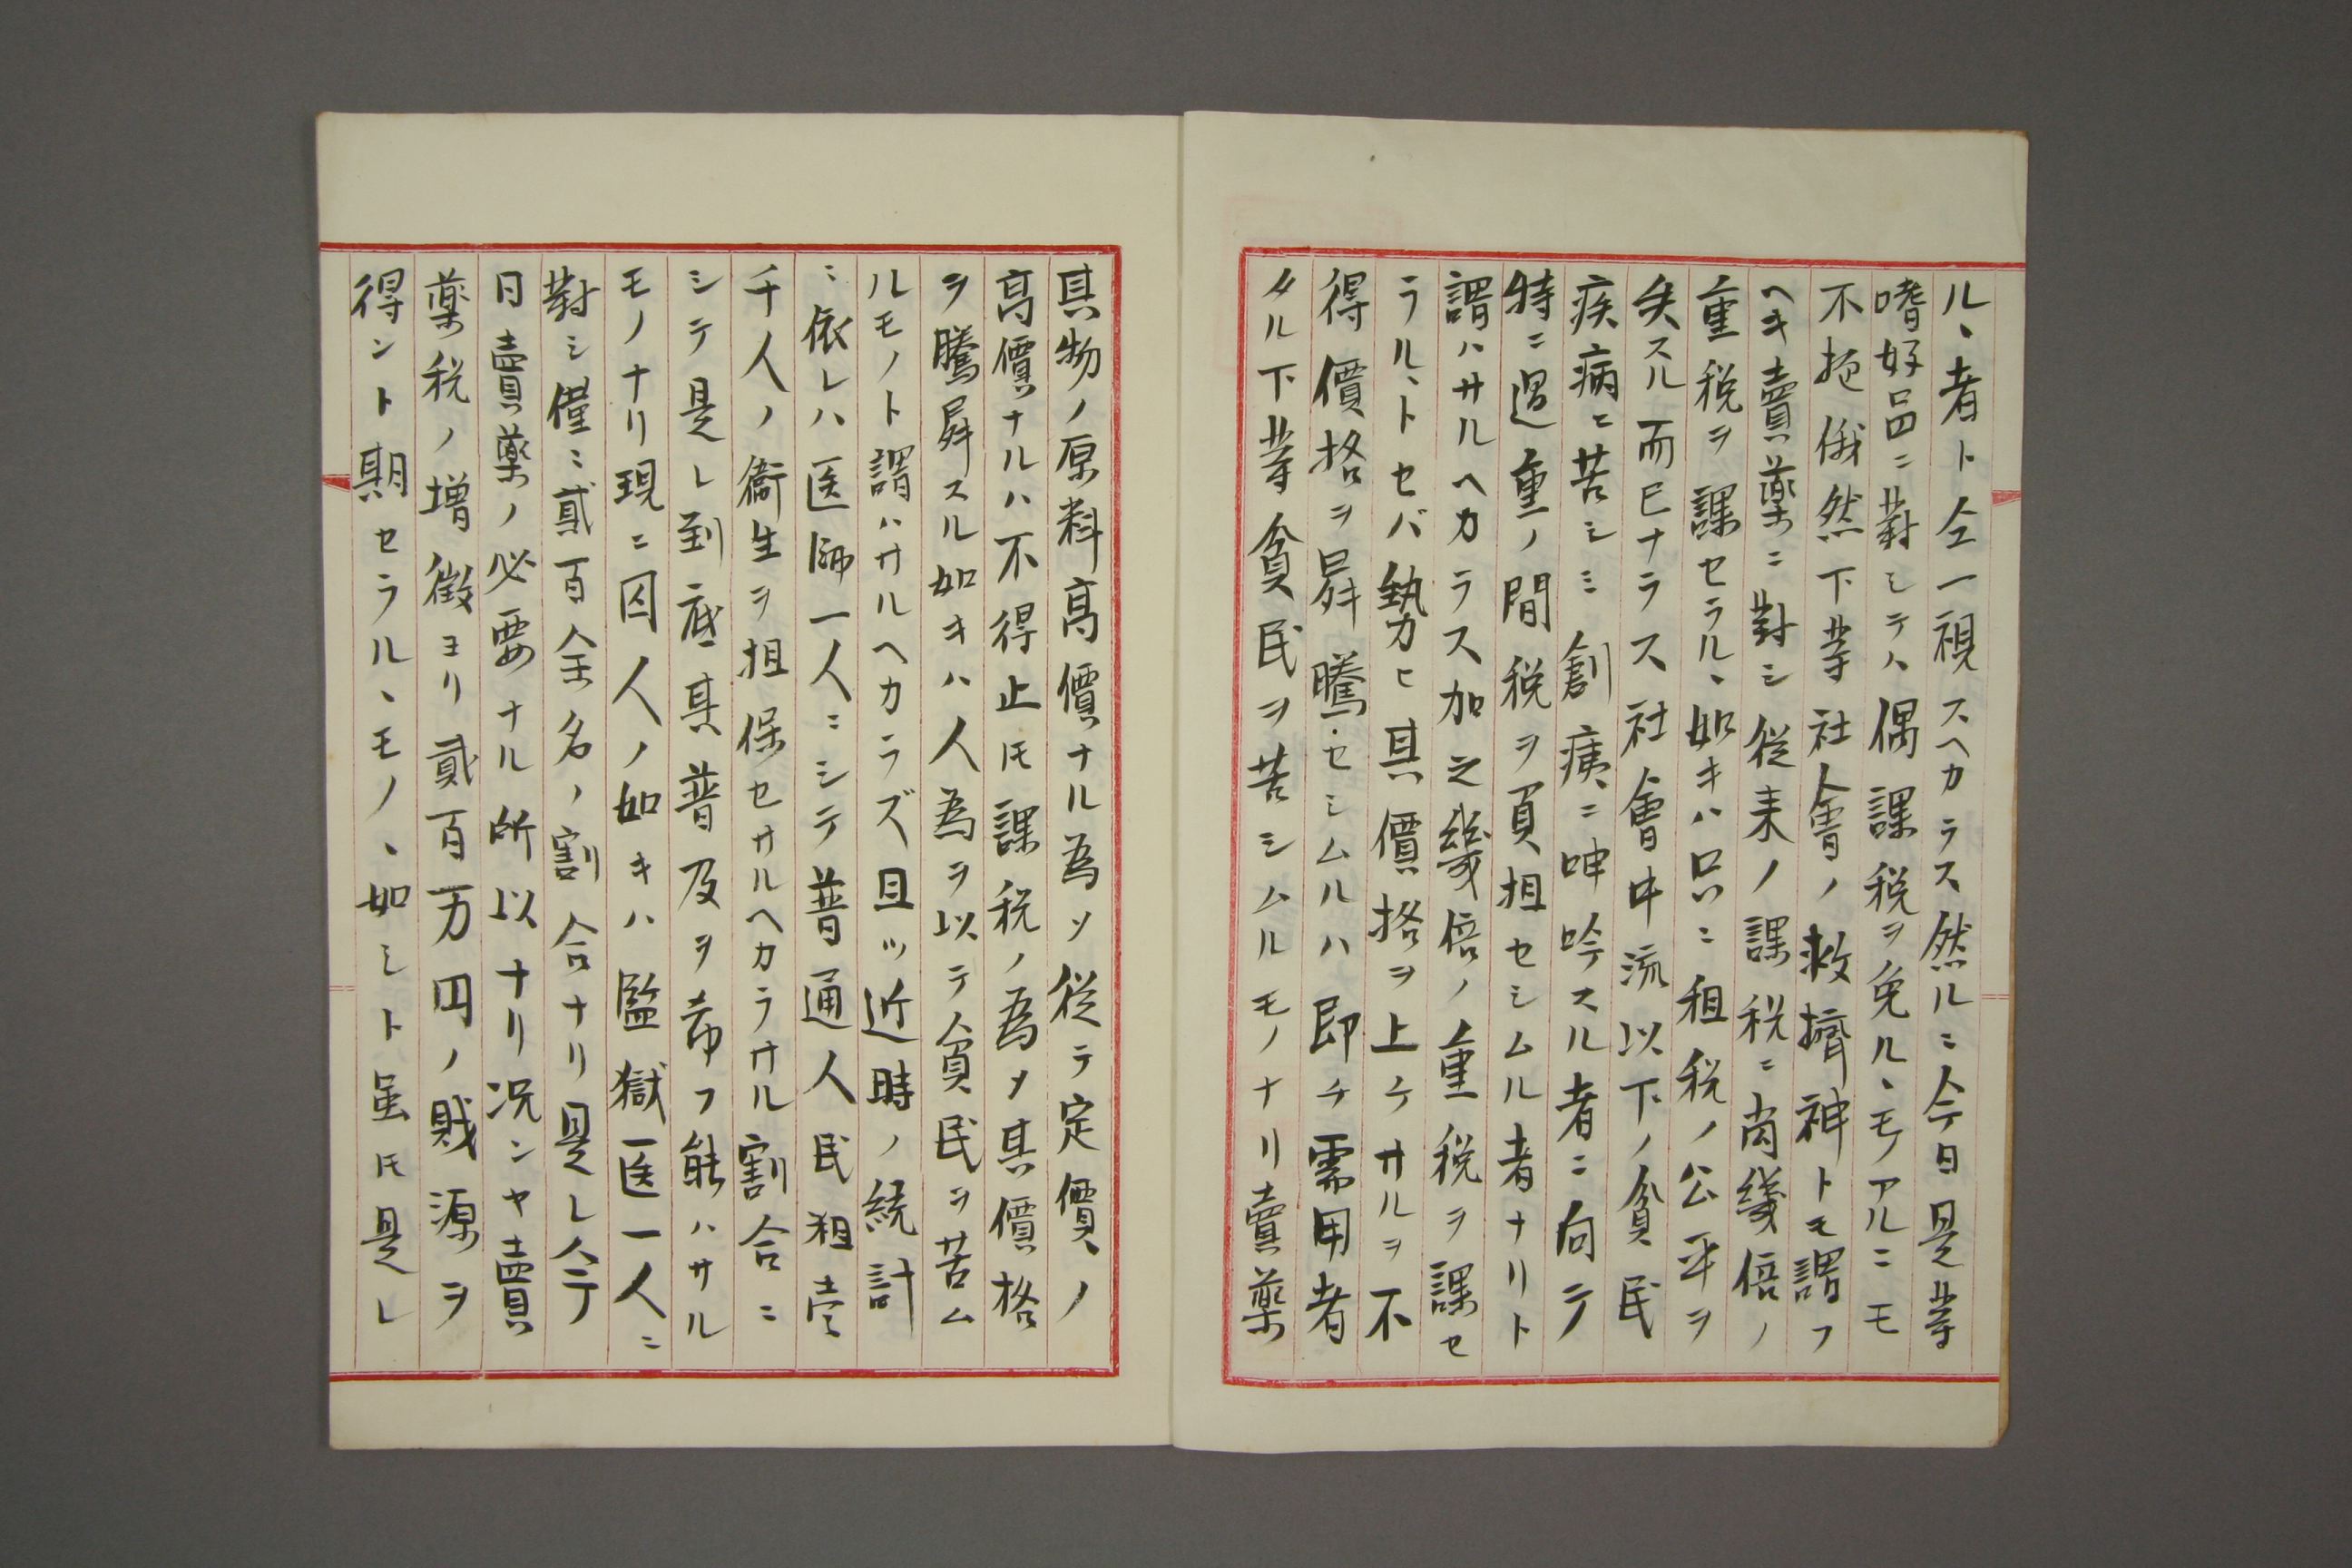 ルヽ者ト仝一視スヘカラス然ルニ今日是等
嗜好品ニ對シテハ偶課税ヲ免ルヽモノアルニモ
不拘俄然下等社會ノ救擠神トモ謂フ
ヘキ賣藥ニ對シ従来ノ課税ニ尚幾倍ノ
重税ヲ課セラルヽ如キハ只ニ租税ノ公平ヲ
失スル而已ナラス社會中流以下ノ貧民
疾病ニ苦シミ創痍ニ呻吟スル者ニ向テ
特ニ過重ノ間税ヲ負担セシムル者ナリト
謂ハサルヘカラス加之幾倍ノ重税ヲ課セ
ラルヽトセバ勢ヒ其價格ヲ上ケサルヲ不
得價格ヲ昇騰セシムルハ即チ需用者
タル下等貧民ヲ苦シムルモノナリ賣藥
其物ノ原料高價ナル為メ従テ定價ノ
高價ナルハ不得止モ課税ノ為メ其價格
ヲ騰昇スル如キハ人為ヲ以テ貧民ヲ苦ム
ルモノト謂ハサルヘカラズ且ツ近時ノ統計
ニ依レハ医師一人ニシテ普通人民粗壱
千人ノ衞生ヲ担保セサルヘカラサル割合ニ
シテ是レ到底其普及ヲ希フ能ハサル
モノナリ現ニ囚人ノ如キハ監獄医一人ニ
對シ僅ニ貳百余名ノ割合ナリ是レ今
日賣藥ノ必要ナル所以ナリ况ンヤ賣
藥税ノ増徴ヨリ貳百万円ノ賊源ヲ
得ント期セラルヽモノヽ如シト虽モ是レ